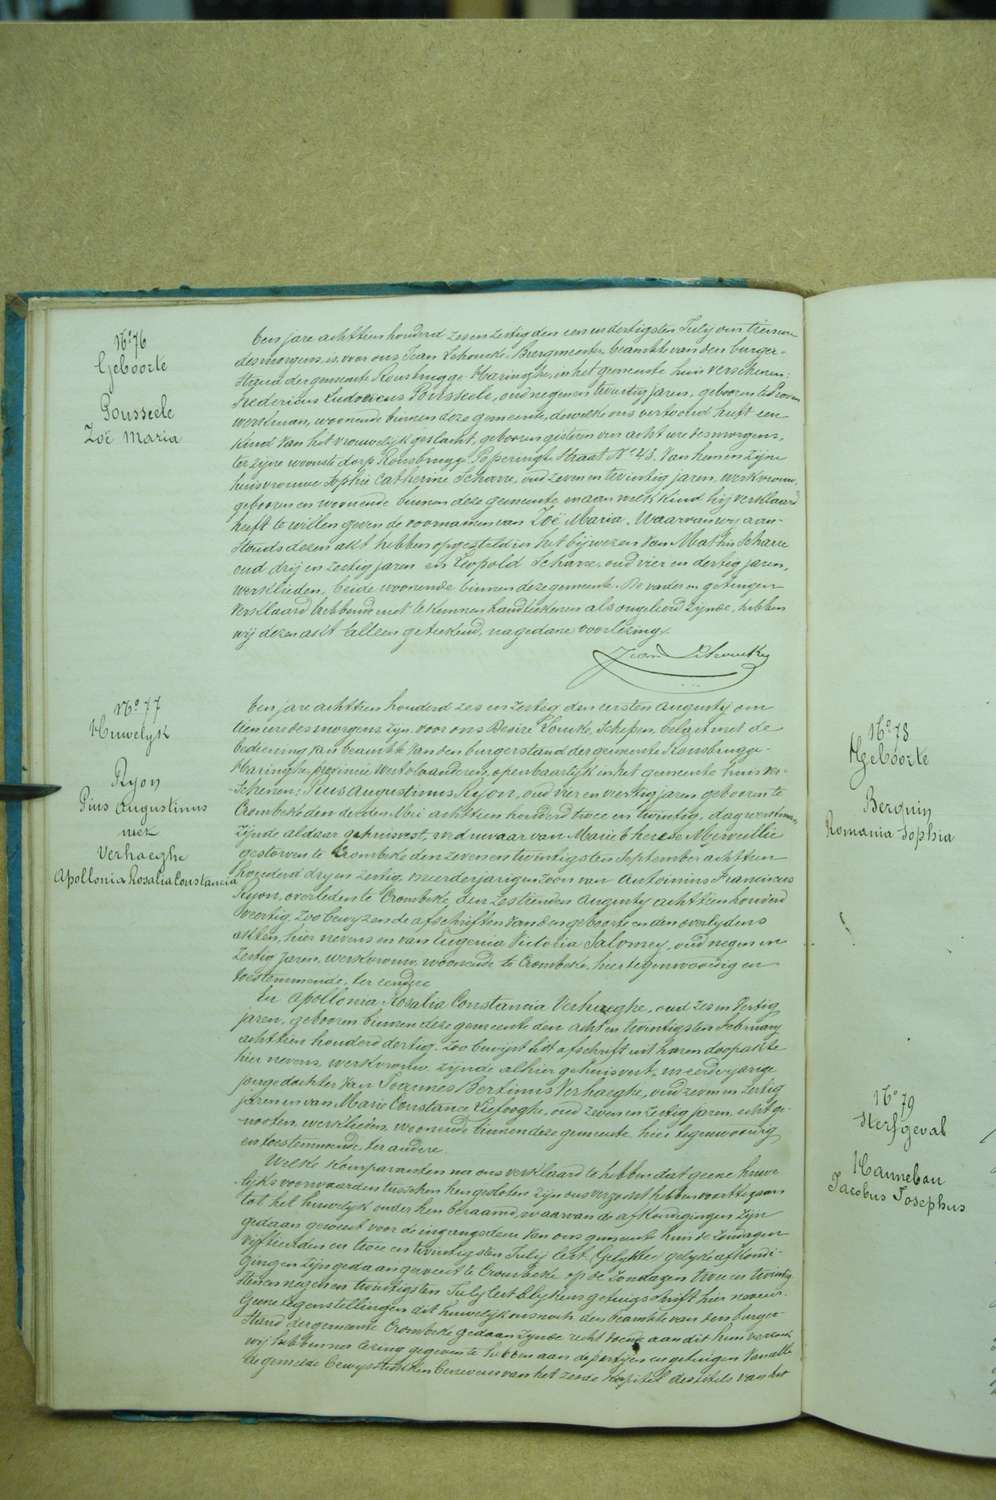 N° 76
Geboorte
Pousseele
Zoë Maria
Ten jare achttien honderd zes en zestig den een en dertigsten July om tien ure
des morgens, is voor ons Jean Lehoucke, Burgmeester, beambte van den burger-
stand der gemeente Rousbrugge-Haringhe, in het gemeente huis verschenen:
Fredericus Ludovicus Pousseele, oud negen en twintig jaren, geboren te Proven
werkman, woonende binnen deze gemeente, dewelke ons vertoond heeft een
kind van het vrouwelijk geslacht, geboren gisteren om acht ure des morgens,
ter zijne woonste dorp Rousbrugge Poperinghe Straat N° 43. Van hem en zijne
huisvrouwe Sophie Catherine Scharre, oud zeven en twintig jaren, werkvrouw,
geboren en woonende binnen deze gemeente en aan welk kind hij verklaard
heeft te willen geven de voornamen van Zoë Maria. Waarvan wy aan-
stonds dezen akt hebben opgesteld in het bijwezen van Mathis Scharre
oud drij en zestig jaren en Leopold Scharre, oud vier en dertig jaren,
werklieden, beide woonende binnen deze gemeente. De vader en getuigen
verklaard hebbende niet te kunnen handteekenen als ongeleerd zijnde, hebben
wij dezen akt alleen geteekend, na gedane voorlezing.
Jean Lehoucke
N° 77
Huwelyk
Ryon
Pius Augustinus
met
Verhaeghe
Apollonia Rosalia Constancia
Ten jare achttien honderd zes en zestig den eersten Augusty om
tien ure des morgens zijn voor ons Desiré Schepen, belast met de
bediening van beambte van den burgerstand der gemeente Rousbrugge-
Haringhe, provincie Westvlaanderen, openbaarlyk in het gemeente huis ver-
schenen: Pius Augustinus Ryon, oud vier en veertig jaren geboren te
Crombeke den derden Mei achttien honderd twee en twintig, dagwerkman,
zijnde aldaar gehuisvest, weduwaar van Marie Therese Merveillie
gestorven te Crombeke den zeven en twintigsten September achttien
honderd drij en zestig, meerderjarigen zoon van Antoinius Franciscus
Ryon, overleden te Crombeke, den zestienden Augusty achttien honderd
veertig, zoo bewijzen de afschriften van den geboorte en den overlydens
akten, hier nevens en van Eugenia Victoria Salomez, oud negen en
zestig jaren, werkvrouw, woonende te Crombeke, hier tegenwoordig en
toestemmende, ter eendzer
En Apollonia Rosalia Constancia Verhaeghe, oud zes en dertig
jaren, geboren binnen deze gemeente den acht en twintigsten February
achttien honderd dertig. Zoo bewijst het afschrift uit haren doopakte
hier nevens, werkvrouw, zijnde alhier gehuisvest, meerderjarige
jonge dochter van Joannes Bertinus Verhaeghe, oud zeven en zestig
jaren en van Marie Constance Liefooghe, oud zeven en zestig jaren, echtge-
nooten, werklieden, woonende binnen deze gemeente, hier tegenwoordig
en toestemmende, ter andere.
Welke komparanten na ons verklaard te hebben dat geene huwe-
lijks voorwaarden tusschen hen gesloten zijn ons verzocht hebben voorttegaan
tot het huwelijk onder hen beraamd, waarvan de afkondigingen zijn
gedaan geweest voor de ingangsdeur van ons gemeente huis de zondagen
vijftienden en twee en twintigsten July lest. Gelijkte gelyke afkondi-
gingen zijn gedaan geweest te Crombeke op de zondagen twee en twintig-
sten en negen en twintigsten July lest blykens getuigschrift hier nevens.
Geene tegenstellingen dit huwelijk ons noch den beambte van den burger-
stand der gemeente Crombeke gedaan zijnde recht doende aan dit hun verzoek
wij hebben na lezing gegeven te hebben aan de partijen en getuigen van alle
de gemelde bewijsstukken benevens van het zesde kapittel des titels van het
N° 78
Geboorte
Berquin
Romania Sophia
N° 79
Sterfgeval
Hannebau
Jacobus Josephus